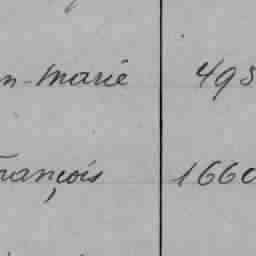 n-Marie 495
François 1660